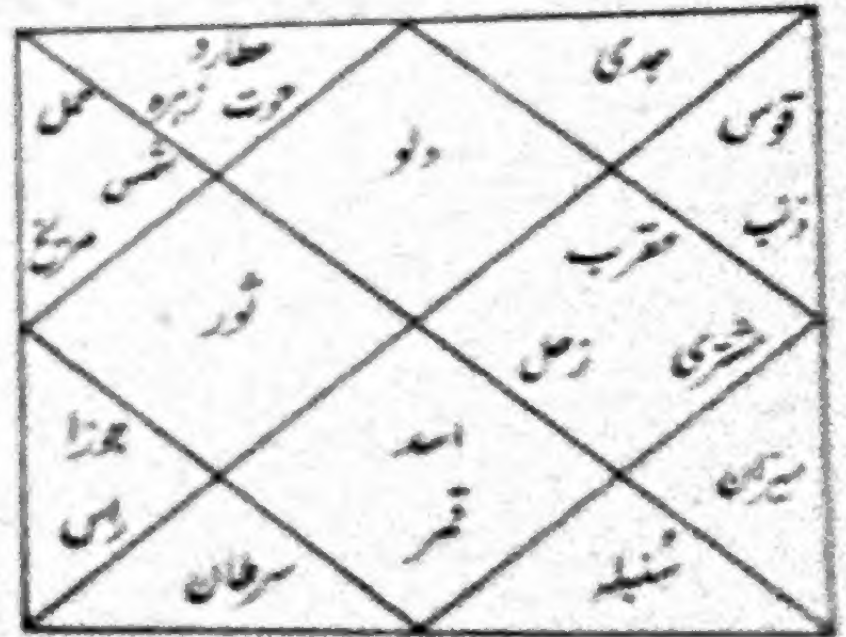 جدی
عطارد
حوت زہرہ
حمل
شمس
مریخ
دلو
قوس
ذنب
عقرب
زحل
مشتری
ثور
جوزا
راس
اسد
قمر
میزان
سرطان
سُنبلہ